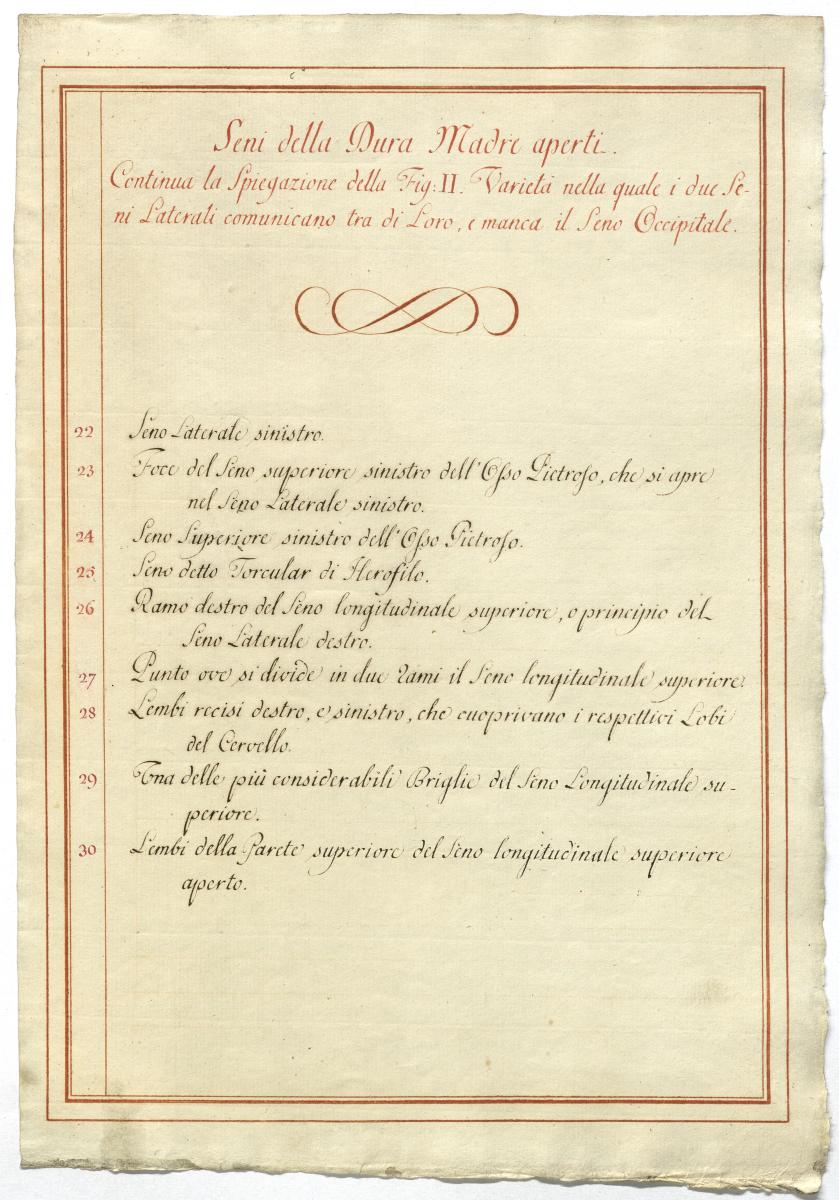 Seni della Dura Madre aperti.
Continua la Spiegazione della Fig: II. Varietà nella quale i due Se-
ni Laterali comunicano tra di Loro, e manca il Seno Occipitale.
22 Seno Laterale sinistro.
23 Foce del Seno superiore sinistro dell'Osso Pietroso, che si apre
nel Seno Laterale sinistro.
24 Seno Superiore sinistro dell'Osso Pietroso.
25 Seno detto Torcular di Herofilo.
26 Ramo destro del Seno longitudinale superiore, o principio del
Seno Laterale destro.
27 Punto ove si divide in due rami il Seno longitudinale superiore.
28 Lembi recisi destro, e sinistro, che cuoprivano i respettivi Lobi
del Cervello.
29 Una delle più considerabili Briglie del Seno Longitudinale su-
periore.
30 Lembi della Parete superiore del Seno longitudinale superiore
aperto.